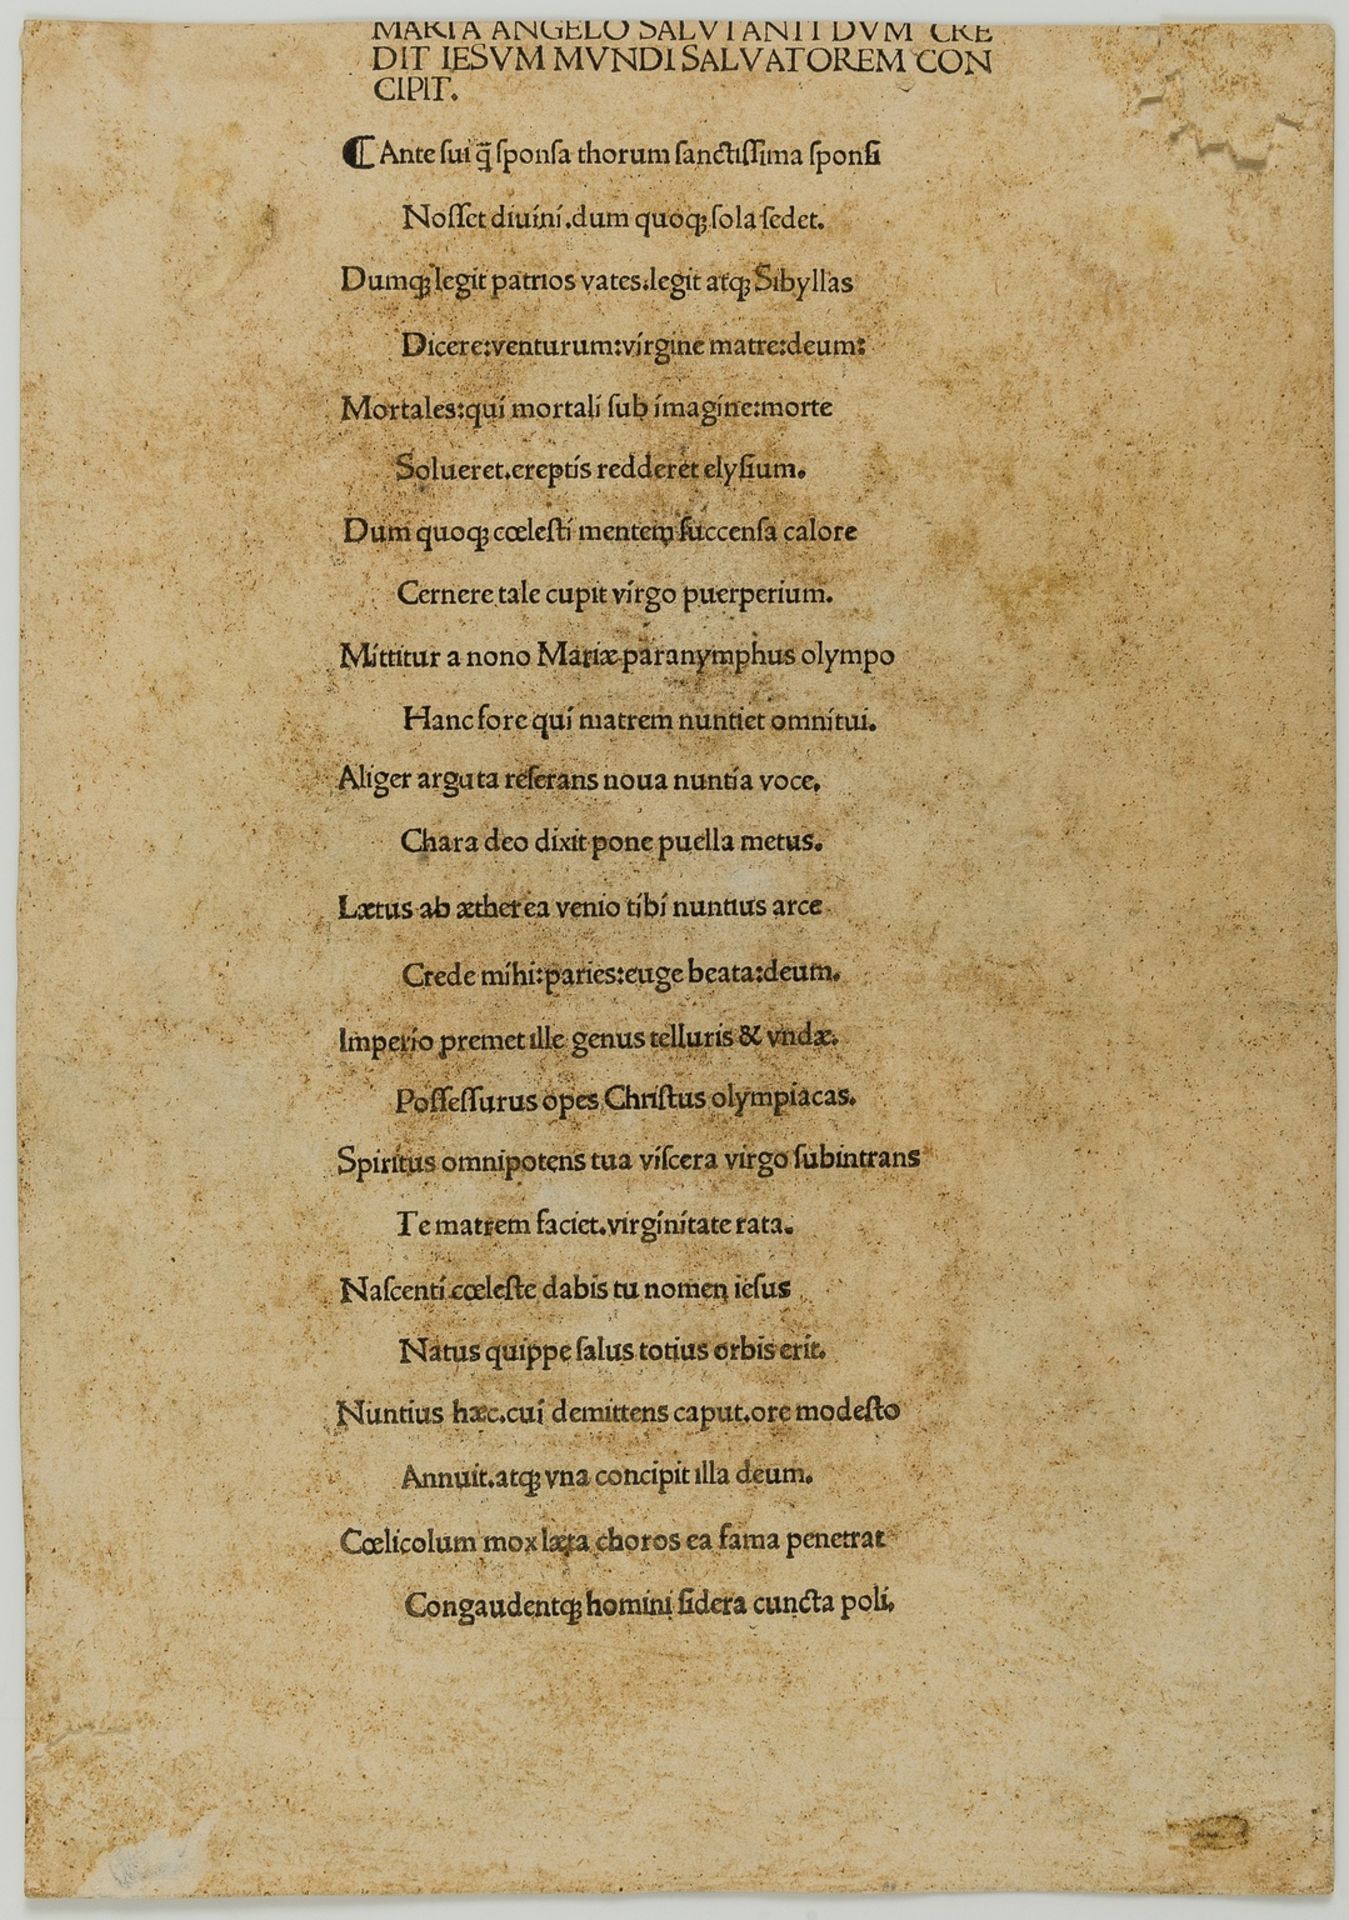 MARIA ANGELO SALVTANTI DVM CRE
DIT IESVM MVNDI SALVATOREM CON
CIPIT.
⸿ Ante ſui q̃ ſponſa thorum ſanctiſſima ſponſi
Noſſet diuini.dum quoqꝫ ſola ſedet.
Dumqꝫ legit patrios vates.legit atqꝫ Sibyllas
Dicere:venturum:virgine matre:deum:
Mortales:qui mortali ſub imagine:morte
Solueret.ereptis redderet elyſium.
Dum quoqꝫ cœleſti mentem ſuccenſa calore
Cernere tale cupit virgo puerperium.
Mittitur a nono Mariæ paranymphus olympo
Hanc fore qui matrem nuntiet omnitui.
Aliger arguta reſerans noua nuntia voce.
Chara deo dixit pone puella metus.
Lætus ab ætherea venio tibi nuntius arce
Crede mihi:paries:euge beata:deum.
Imperio premet ille genus telluris & vndæ.
Poſſeſſurus opes Chriſtus olympiacas.
Spiritus omnipotens tua viſcera virgo ſubintrans
Te matrem faciet.virginitate rata.
Naſcenti cœleſte dabis tu nomen ieſus
Natus quippe ſalus totius orbis erit.
Nuntius hæc.cui demittens caput.ore modeſto
Annuit.atqꝫ vna concipit illa deum.
Cœlicolum mox læta choros ea fama penetrat
Congaudentqꝫ homini ſidera cuncta poli.